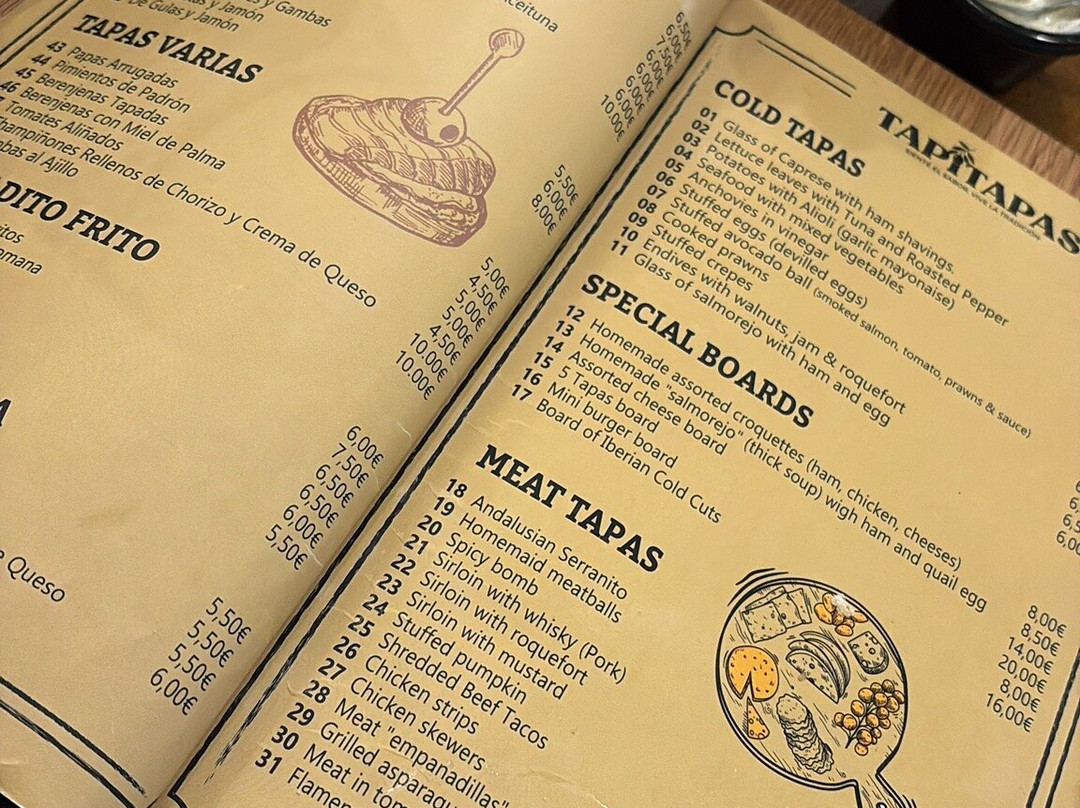 y Gambas
y Jamón
De Gulas y Jamón
aceituna
6,50€
6,00€
7,50€
6,00€
6,00€
6,00€
10.00€
TAPAS VARIAS
43 Papas Arrugadas
44 Pimientos de Padrón
45 Berenjenas Tapadas
46 Berenjenas con Miel de Palma
Tomates Aliñados
Champiñones Rellenos de Chorizo y Crema de Queso
al Ajillo
5,50€
6,00€
8,00€
5,00€
4,50€
5,00€
5,00€
4,50€
10.00€
10.00€
FRITO
6,00€
7,50€
6,50€
6,50€
6,00€
5,50€
A
Queso
5,50€
5,50€
5,50€
6,00€
TAPITAPAS
SIENTE EL SABOR, VIVE LA TRADICIÓN
COLD TAPAS
01 Glass of Caprese with ham shavings.
02 Lettuce leaves with Tuna and Roasted Pepper
03 Potatoes with Alioli (garlic mayonaise)
04 Seafood with mixed vegetables
05 Anchovies in vinegar
06 Stuffed eggs (devilled eggs)
07 Stuffed avocado ball (smoked salmon, tomato, prawns & sauce)
08 Cooked prawns
09 Stuffed crepes
10 Endives with walnuts, jam & roquefort
11 Glass of salmorejo with ham and egg
SPECIAL BOARDS
12 Homemade assorted croquettes (ham, chicken, cheeses)
13 Homemade "salmorejo" (thick soup) wigh ham and quail egg
14 Assorted cheese board
15 5 Tapas board
16 Mini burger board
17 Board of Iberian Cold Cuts
8,00€
8,50€
14,00€
20,00€
8,00€
16,00€
MEAT TAPAS
18 Andalusian Serranito
19 Homemaid meatballs
20 Spicy bomb
21 Sirloin with whisky (Pork)
22 Sirloin with roquefort
23 Sirloin with mustard
24 Stuffed pumpkin
25 Shredded Beef Tacos
26 Chicken strips
27 Chicken skewers
28 Meat "empanadillas"
29 Grilled
30 Meat in
31